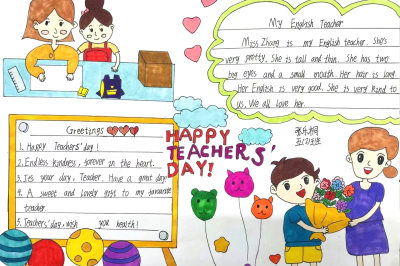 My English Teacher
Miss Zhang is my English teacher. She's
very pretty. She is tall and thin. She has two
big eyes and a small mouth. Her hair is long.
Her English is very good. She is very kind to
us. We all love her.
Greetings
1. Happy Teachers' day!
2. Endless kindness, forever in the heart.
3. It's your day, Teacher. Have a great day!
4. A sweet and lovely kiss to my favourite
teacher.
5. Teachers' day, wish you health!
HAPPY
TEACHERS'
DAY!